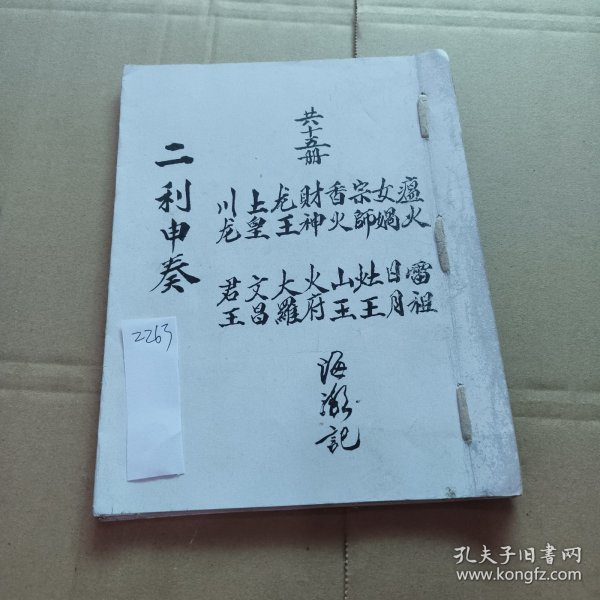 共十五册
瘟火
女媧
宗師
香火
財神
龙王
上皇
川龙
雷祖
日月
灶王
山王
火府
大羅
文昌
君王
二利申奏
海澂記
2263
孔夫子旧书网
www.kongfz.com